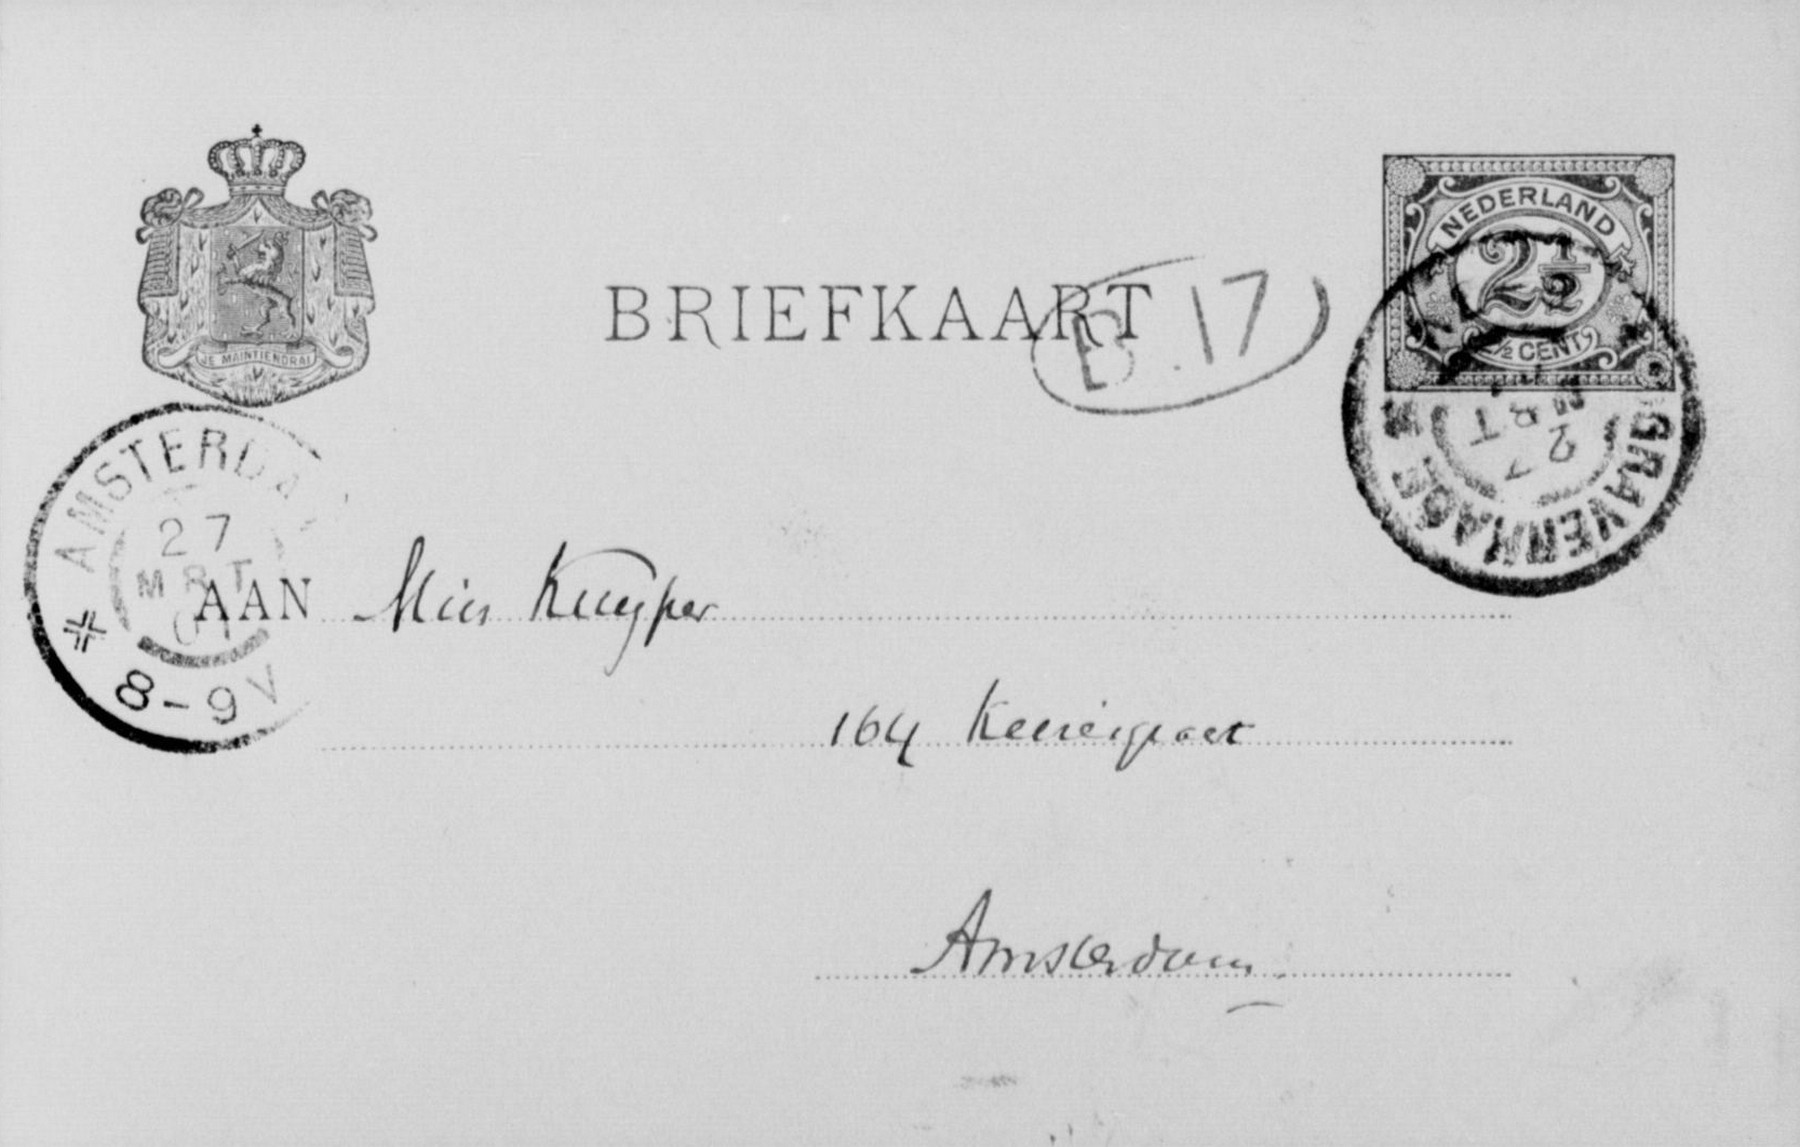 NEDERLAND
2 1/2
2 1/2 CENT
BRIEFKAART
B. 17
JE MAINTIENDRAI
'S GRAVENHAGE
27
MRT
AMSTERDAM
27
MRT
01
8-9 V
AAN Mies Kuyper
164 Keizersgracht
Amsterdam